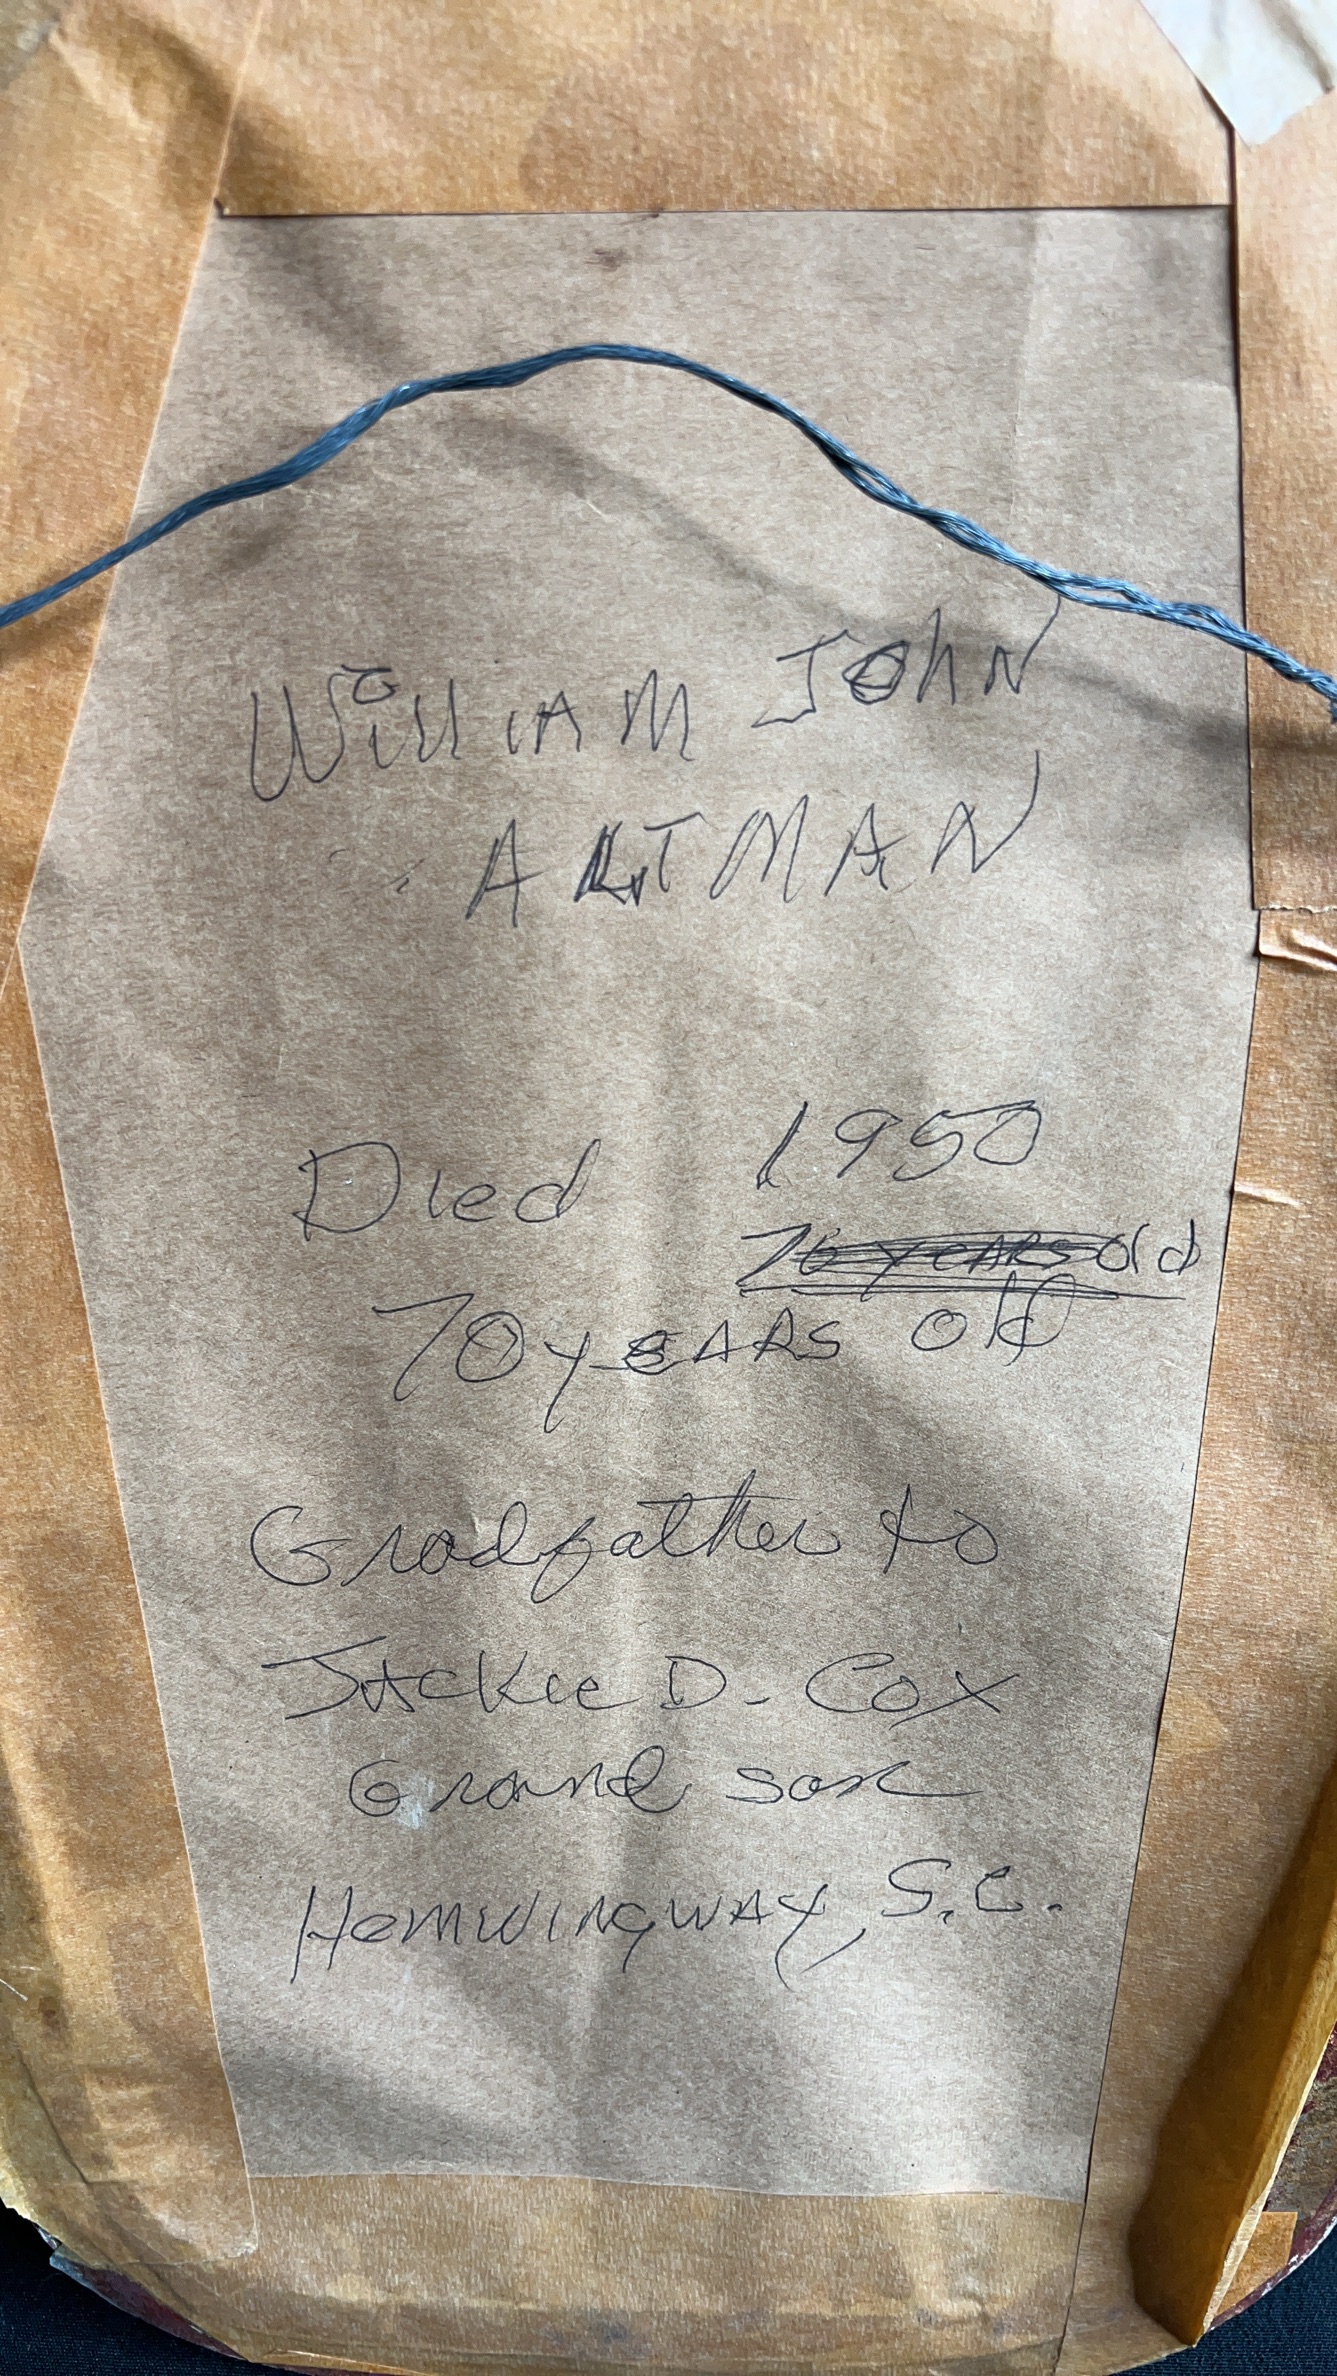 WilliAM JOHN
ALTMAN
Died 1950
76 YEARS old
70 YEARS old
Gradfather to
JAckie D. Cox
Grand son
HemWingWAY, S.C.